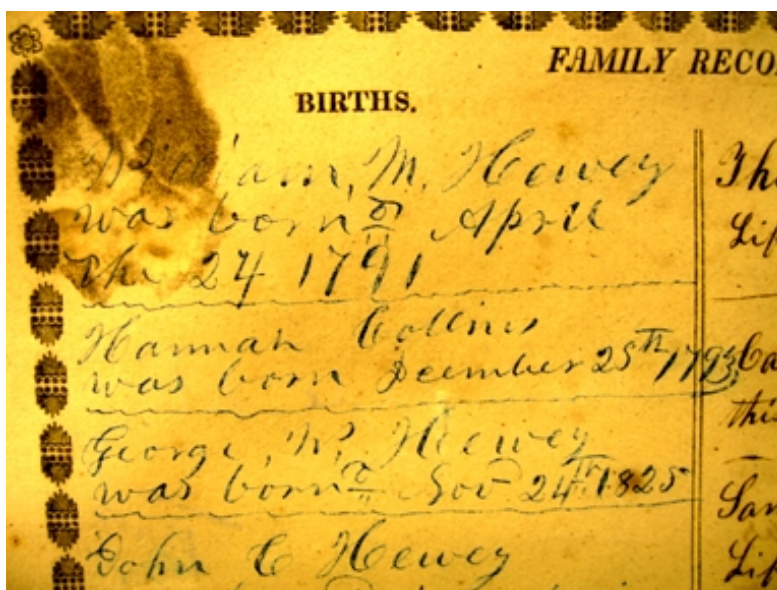 FAMILY RECO
BIRTHS.
William, M, Hewey
was born April
the 24 1791
Hannah Collins
was born December 25th 1793
George, W, Hewey
was born Nov 24th 1825
John C Hewey
Th
Lif
Ca
this
San
Lif